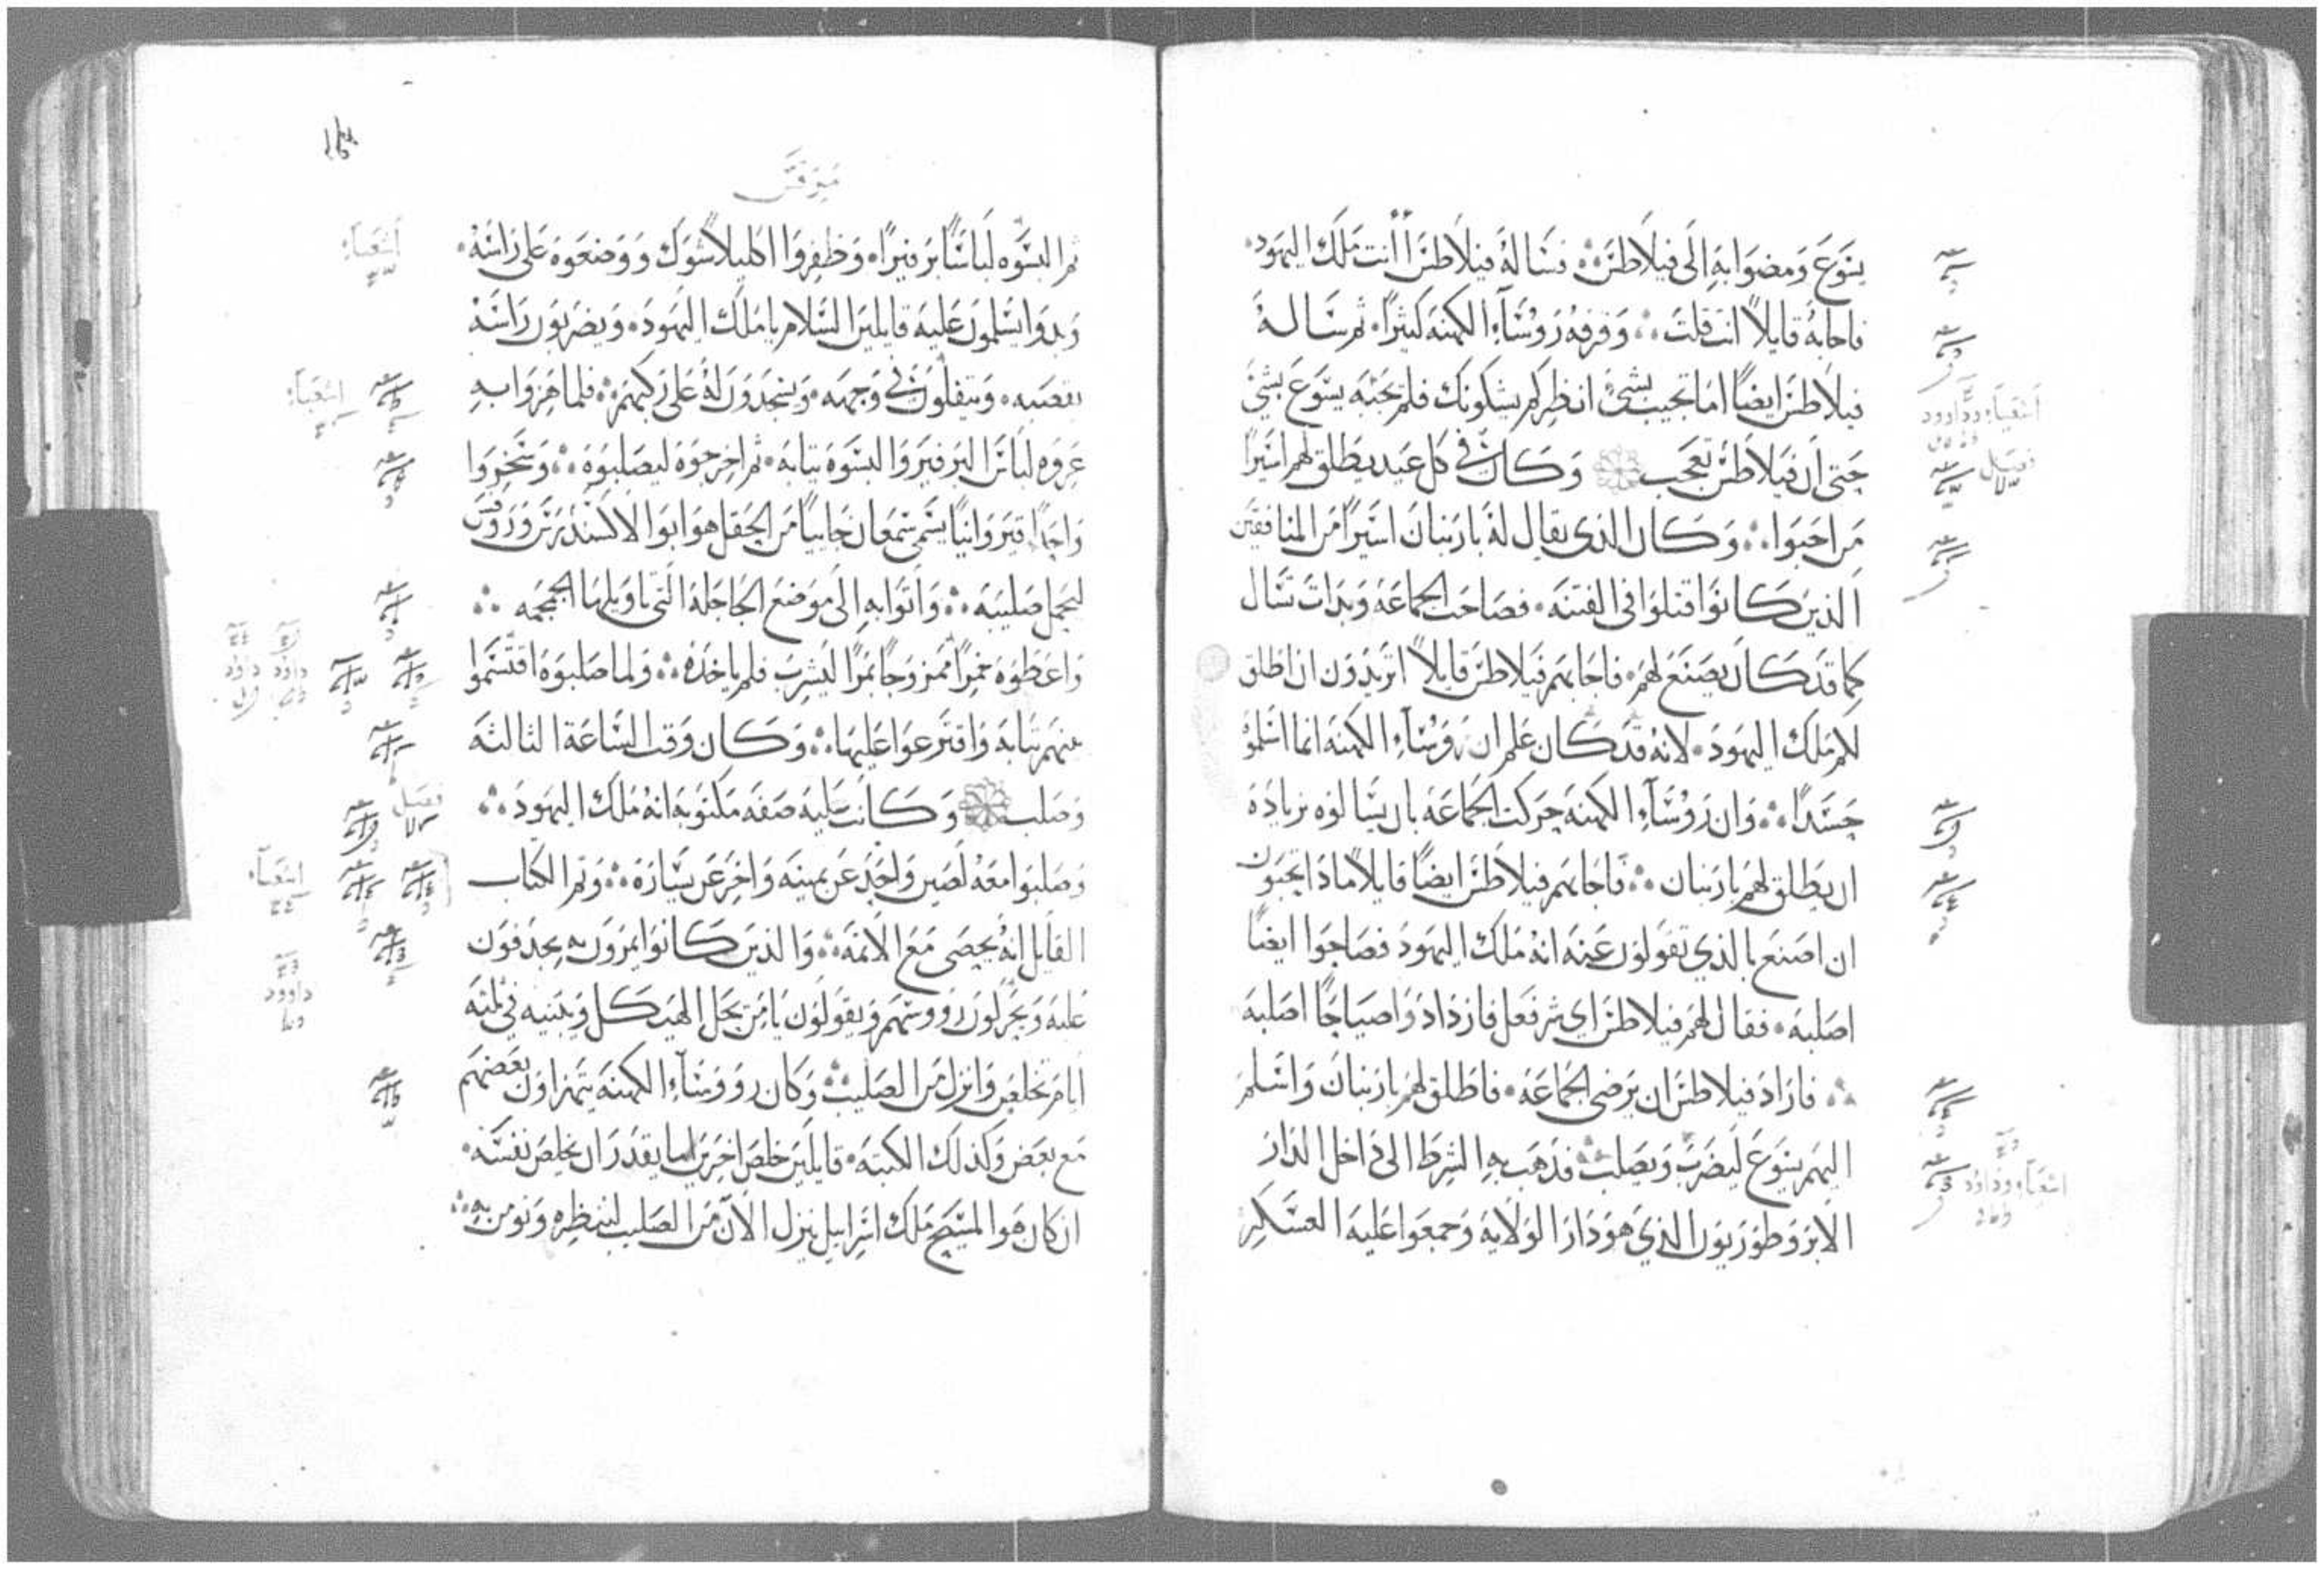 يسوع ومضوا به الى فيلاطس ܀ فساله فيلاطس أأنت ملك اليهود
فاجابه قايلاً انت قلت ܀ وقرفه روساء الكهنه كثيرًا ثم ساله
فيلاطس ايضًا اما تجيب بشي انظر كم يشكونك فلم يجبه يسوع بشي
حتى ان فيلاطس تعجب وكان في كل عيد يطلق لهم اسيرًا
من احبوا ܀ وكان الذي يقال له بارنبان اسيرًا من المنافقين
الذين كانوا قتلوا في الفتنه فصاحت الجماعه وبدات تسال
كما قد كان يصنع لهم فاجابهم فيلاطس قايلاً اتريدون ان اطلق
لكم ملك اليهود لانه قد كان علم ان روساء الكهنه انما اسلموه
حسدًا ܀ وان روساء الكهنه حركت الجماعه بان يسالوه بزياده
ان يطلق لهم بارنبان ܀ فاجابهم فيلاطس ايضًا قايلاً ماذا تحبون
ان اصنع بالذي تقولون عنه انه ملك اليهود فصاحوا ايضًا
اصلبه فقال لهم فيلاطس اي شر فعل فازدادوا صياحًا اصلبه
܀ فاراد فيلاطس ان يرضي الجماعه فاطلق لهم بارنبان واسلم
اليهم يسوع ليضرب ويصلب ܀ فذهب به الشرط الى داخل الدار
الابروطوريون الذي هو دار الولايه وجمعوا عليه العسكر
اشعيا وداوود
فصل
اشعيا وداود
مرقس
ثم البسوه لباسًا برفيرًا وظفروا اكليلاً شوك ووضعوه على راسه
وبدوا يسلمون عليه قايلين السلام يا ملك اليهود ويضربون راسه
بقصبه ويتفلون في وجهه ويسجدون له على ركبهم ܀ فلما هزوا به
عروه لباس البرفير والبسوه ثيابه ثم اخرجوه ليصلبوه ܀ وسخروا
واحدًا قيروانيًا يسمى سمعان جاييًا من الحقل هو ابو الاكسندرس وروفس
ليحمل صليبه ܀ واتوا به الى موضع الجاجله التي تاويلها الجمجمه ܀
واعطوه خمرًا ممزوجًا بمرًا ليشرب فلم ياخذه ܀ ولما صلبوه اقتسموا
بينهم ثيابه واقترعوا عليها ܀ وكان وقت الساعة الثالثه
وصلب وكانت عليه صفه مكتوبه انه ملك اليهود ܀
وصلبوا معه لصين واحد عن يمينه واخر عن يساره ܀ وتم الكتاب
القايل انه يحصى مع الاثمه ܀ والذين كانوا يمرون به يجدفون
عليه ويحركون رووسهم ويقولون يا من يحل الهيكل ويبنيه في ثلثه
ايام تخلص وانزل من الصليب ܀ وكان رووساء الكهنه يتهزاون بعضهم
مع بعض وكذلك الكتبه قايلين خلص اخرين اما يقدر ان يخلص نفسه
ان كان هو المسيح ملك اسراييل ينزل الان من الصليب لننظره ونومن به ܀
اشعيا
اشعيا
داوود داود
فصل
اشعيا
داوود